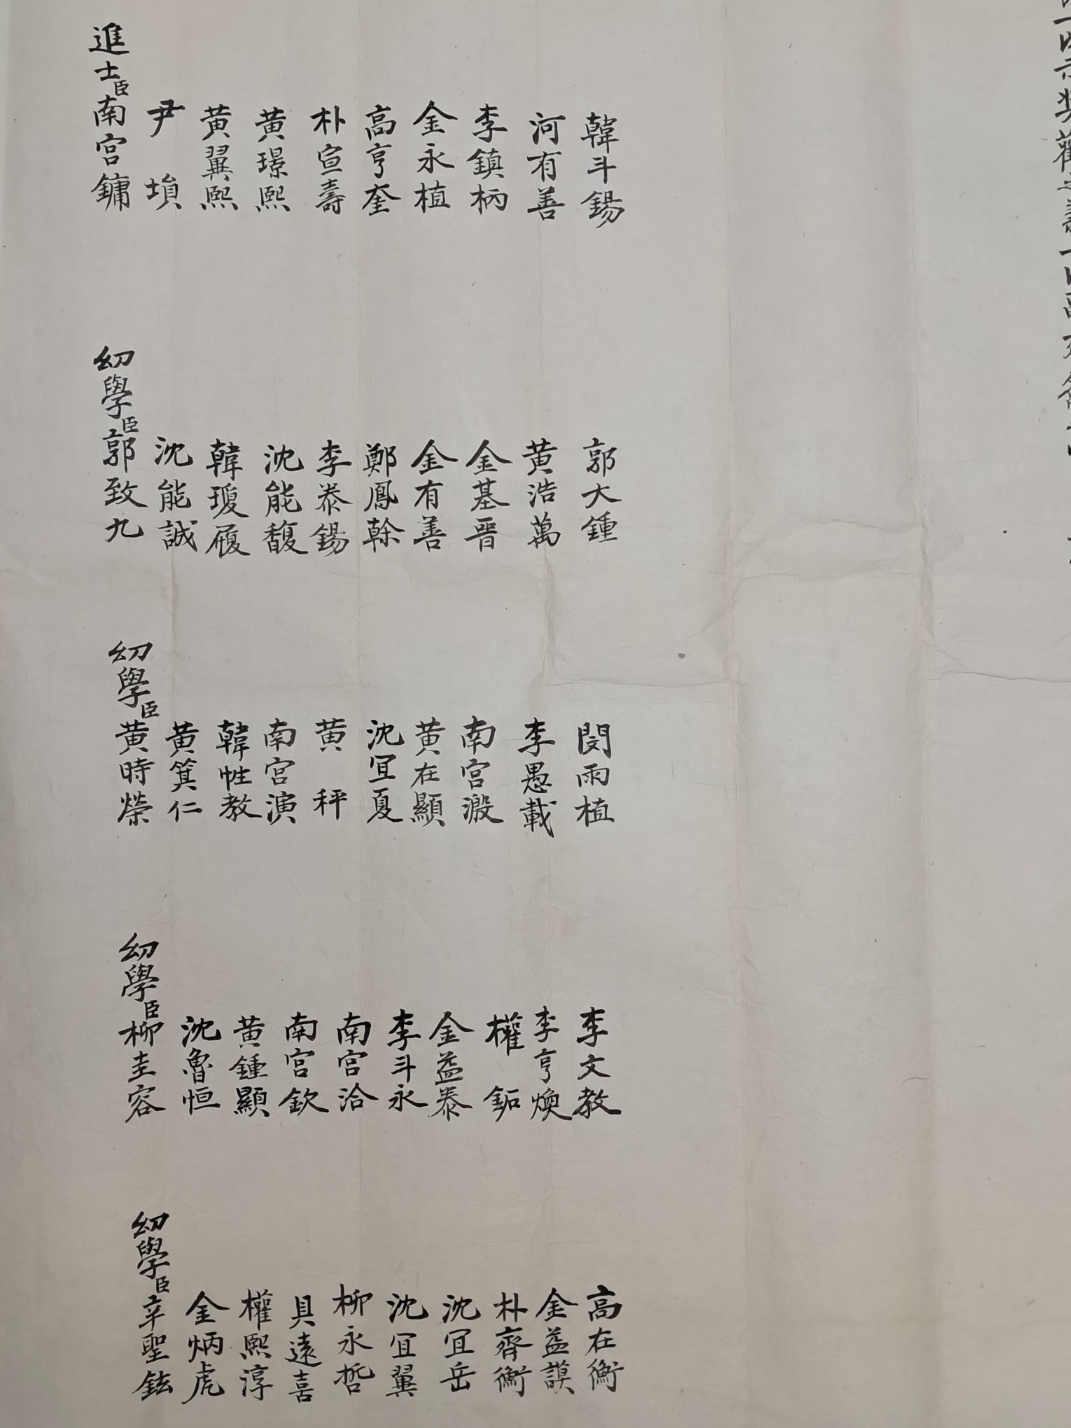 韓斗錫
河有善
李鎮柄
金永植
高亨奎
朴宣壽
黃璟熙
黃翼熙
尹塤
進士臣南宮鏞
郭大鍾
黃浩萬
金基晋
金有善
鄭鳳榦
李泰錫
沈能馥
韓瓊履
沈能誠
幼學臣郭致九
閔雨植
李愚載
南宮澱
黃在顯
沈宜夏
黃秤
南宮演
韓性教
黃箕仁
幼學臣黃時榮
李文教
李亨煥
權鉐
金益泰
李斗永
南宮洽
南宮欽
黃鍾顯
沈魯恒
幼學臣柳圭容
高在衡
金益謨
朴齊衡
沈宜岳
沈宜翼
柳永哲
具遠喜
權熙淳
金炳虎
幼學臣辛聖鉉